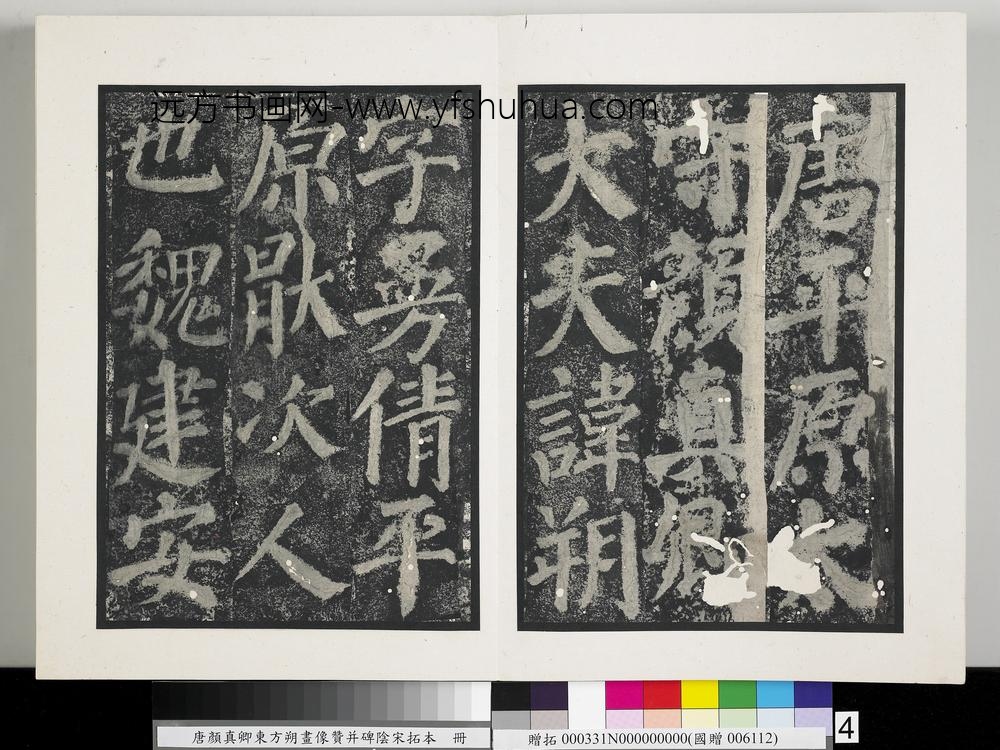 远方书画网-www.yfshuhua.com
唐平原太
守顏真卿
大夫諱朔
字曼倩平
原厭次人
也魏建安
唐顏真卿東方朔畫像贊并碑陰宋拓本 冊
贈拓 000331N000000000(國贈 006112)
4